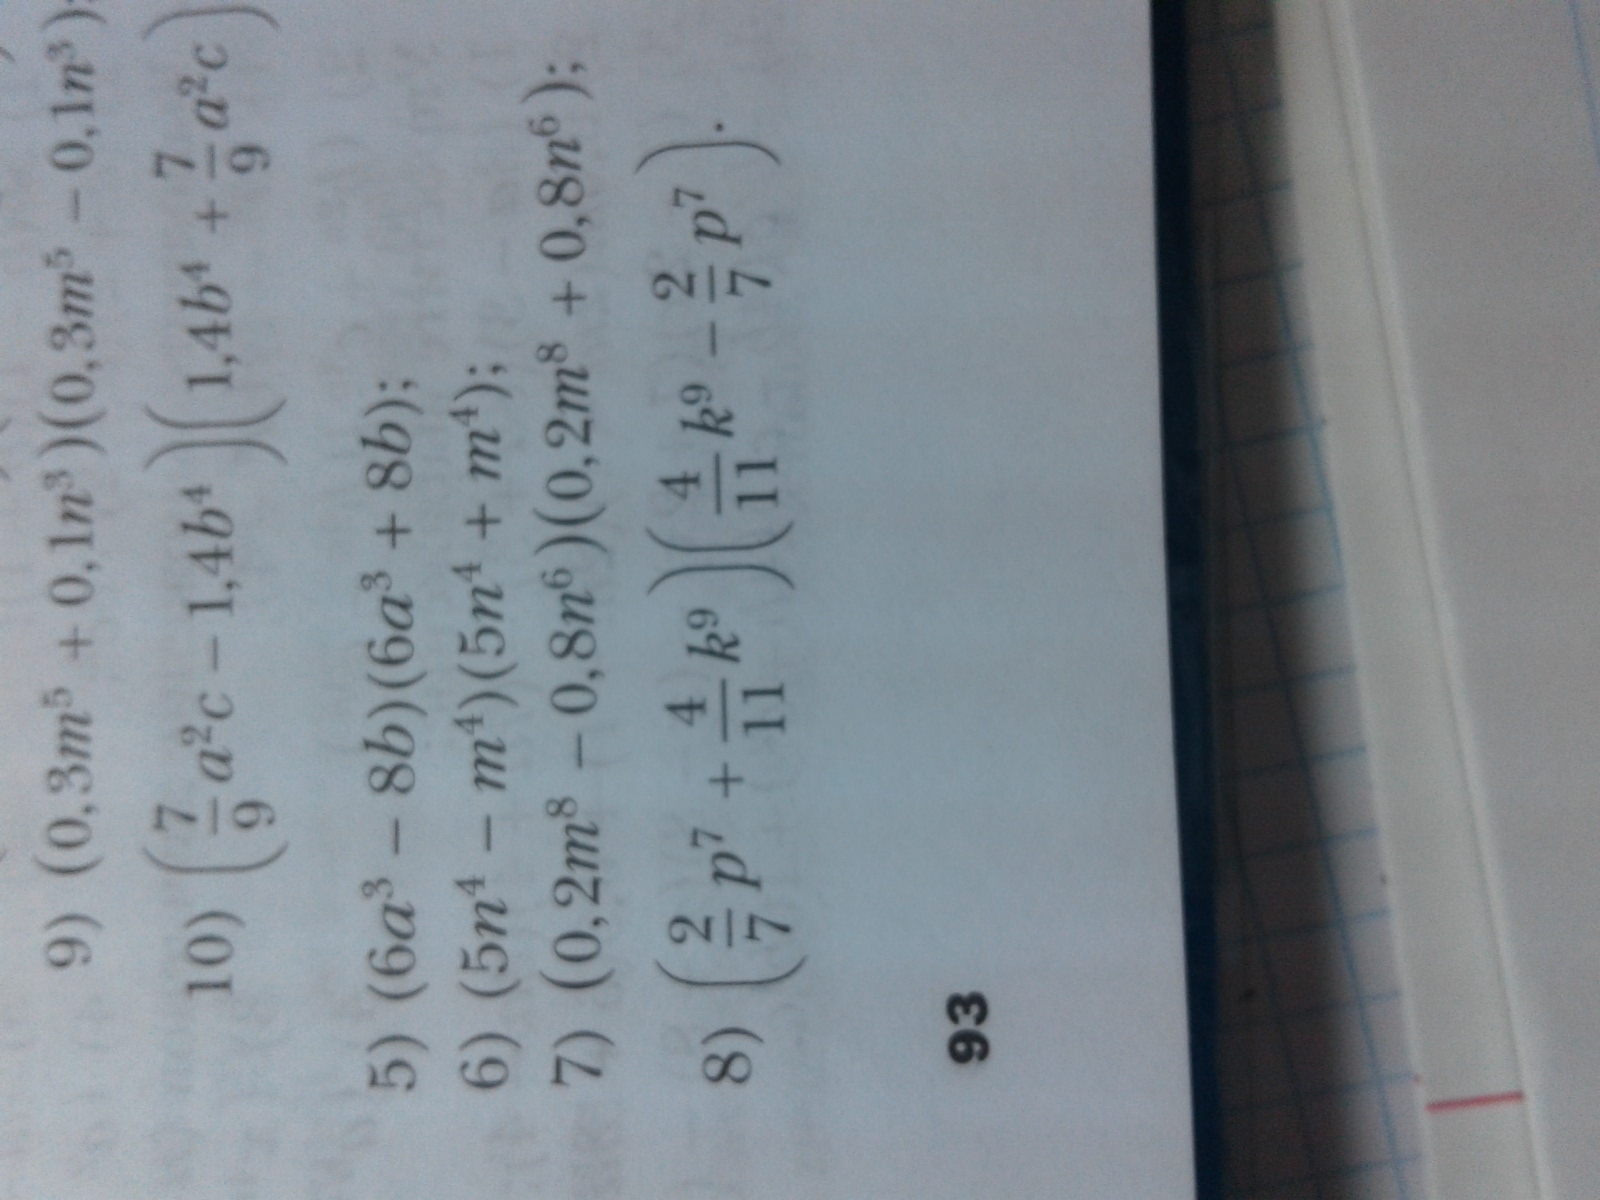 9) (0,3m⁵ + 0,1n³)(0,3m⁵ − 0,1n³);
10) (7/9 a²c − 1,4b⁴)(1,4b⁴ + 7/9 a²c)
5) (6a³ − 8b)(6a³ + 8b);
6) (5n⁴ − m⁴)(5n⁴ + m⁴);
7) (0,2m⁸ − 0,8n⁶)(0,2m⁸ + 0,8n⁶);
8) (2/7 p⁷ + 4/11 k⁹)(4/11 k⁹ − 2/7 p⁷).
93